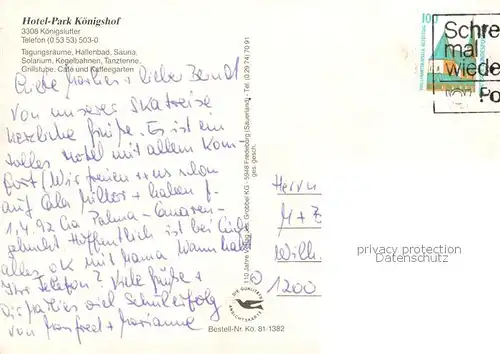 Hotel-Park Königshof
3308 Königslutter
Telefon (0 53 53) 503-0
Tagungsräume, Hallenbad, Sauna,
Solarium, Kegelbahnen, Tanztenne,
Grillstube, Café und Kaffeegarten
Liebe Marlies + liebe Bernd!
Von unserer Skatreise
herzliche Grüße. Es ist ein
tolles Hotel mit allem Kom-
fort! Wir freuen uns schon
auf Cala Millor + haben f.
1.4.92 Palma
gebucht Hoffentlich ist bei Euch
alles OK mit Mama Wann habt
Ihr Telefon? Viele Grüße +
Marlies viel Schulerfolg
von Manfred + Marianne
110 Jahre Verlag Grobbel KG · 5948 Fredeburg (Sauerland) · Tel. (0 29 74) 70 91
ges. gesch.
DIE QUALITÄTS
ANSICHTSKARTE
Bestell-Nr. Kö. 81/1382
100
Schre
mal
wiede
Po
Herrn
M + Z
Will.
1200
privacy protection
Datenschutz